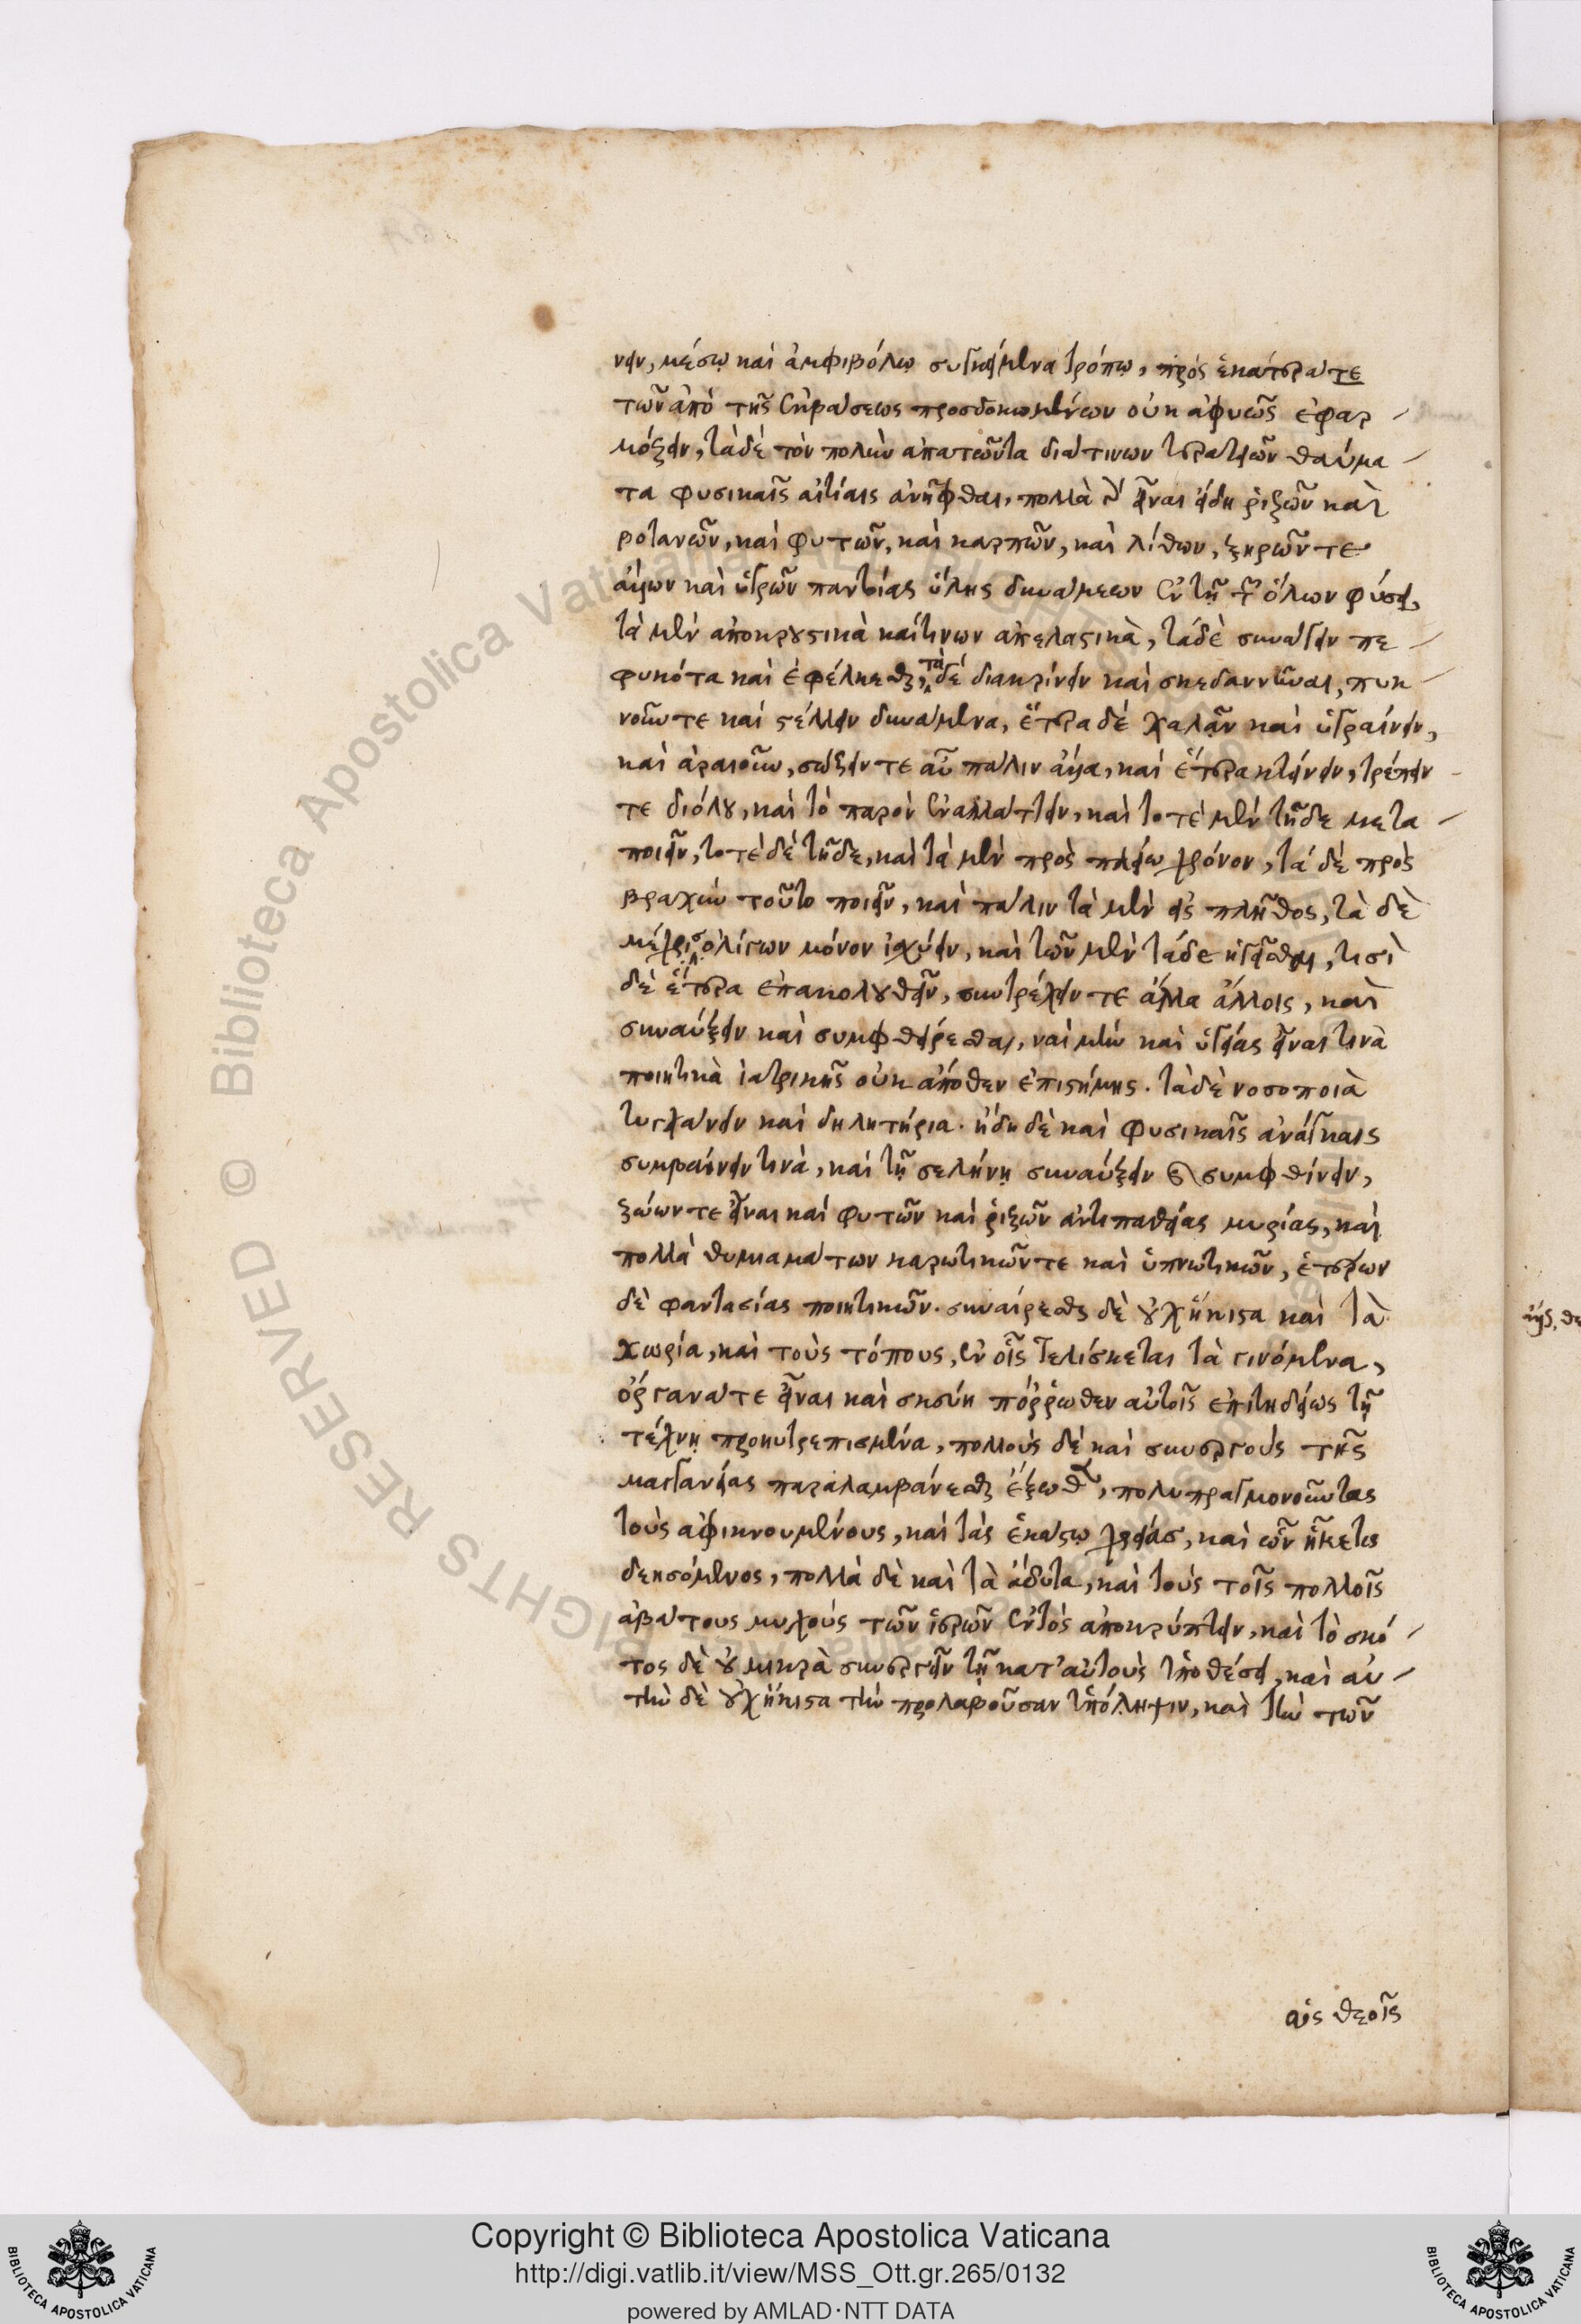 νειν, μέσῳ καὶ ἀμφιβόλῳ συγκείμενα τρόπῳ, πρὸς ἑκάτερά τε
τῶν ἀπὸ τῆς ἐκβάσεως προσδοκωμένων οὐκ ἀφυῶς ἐφαρ-
μόζειν, τὰ δὲ τὸν πολὺν ἀπατῶντα διά τινων τερατειῶν θαύμα-
τα φυσικαῖς αἰτίαις ἀνῆφθαι, πολλὰ γὰρ εἶναι εἴδη ῥιζῶν καὶ
βοτανῶν, καὶ φυτῶν, καὶ καρπῶν, καὶ λίθων, ξηρῶν τε
αὖ καὶ ὑγρῶν παντοίας ὕλης δυνάμεων ἐν τῇ τῶν ὅλων φύσει,
τὰ μὲν ἀποκρουστικὰ καί τινων ἀπελαστικὰ, τὰ δὲ συνάγειν πε-
φυκότα καὶ ἐφέλκεσθαι, τὰ δὲ διακρίνειν καὶ σκεδαννῦναι, πυκ-
νοῦν τε καὶ στέλλειν δυνάμενα, ἕτερα δὲ χαλᾷν καὶ ὑγραίνειν,
καὶ ἀραιοῦν, σῴζειν τε αὖ πάλιν ἄττα, καὶ ἕτερα κτείνειν, τρέπειν
τε διόλου, καὶ τὸ παρὸν ἐναλλάττειν, καὶ τοτὲ μὲν τῇδε μετα-
ποιεῖν, τοτὲ δὲ τῇδε, καὶ τὰ μὲν πρὸς πλείω χρόνον, τὰ δὲ πρὸς
βραχὺν τοῦτο ποιεῖν, καὶ πάλιν τὰ μὲν εἰς πλῆθος, τὰ δὲ
μέχρις ὀλίγων μόνον ἰσχύειν, καὶ τῶν μὲν τάδε ἡγεῖσθαι, τισὶ
δὲ ἕτερα ἐπακολουθεῖν, συντρέχειν τε ἄλλα ἄλλοις, καὶ
συναύξειν καὶ συμφθείρεσθαι, ναὶ μὴν καὶ ὑγείας εἶναι τινὰ
ποιητικὰ ἰατρικῆς οὐκ ἄποθεν ἐπιστήμης. τὰ δὲ νοσοποιὰ
τυγχάνειν καὶ δηλητήρια. ἤδη δὲ καὶ φυσικαῖς ἀνάγκαις
συμβαίνειν τινὰ, καὶ τῇ σελήνῃ συναύξειν καὶ συμφθίνειν,
ζώων τε εἶναι καὶ φυτῶν καὶ ῥιζῶν ἀντιπαθείας μυρίας, καὶ
πολλὰ θυμιαμάτων καρωτικῶν τε καὶ ὑπνωτικῶν, ἑτέρων
δὲ φαντασίας ποιητικῶν. συναίρεσθαι δὲ οὐχ ἥκιστα καὶ τὰ
χωρία, καὶ τοὺς τόπους, ἐν οἷς τελίσκεται τὰ γινόμενα,
ὄργανά τε εἶναι καὶ σκεύη πόρρωθεν αὐτοῖς ἐπιτηδείως τῇ
τέχνῃ προηυτρεπισμένα, πολλοὺς δὲ καὶ συνεργοὺς τῆς
μαγγανείας παραλαμβάνεσθαι ἔξωθεν, πολυπραγμονοῦντας
τοὺς ἀφικνουμένους, καὶ τὰς ἑκάστῳ χρείας, καὶ ὧν ἥκει τις
δεησόμενος, πολλὰ δὲ καὶ τὰ ἄδυτα, καὶ τοὺς τοῖς πολλοῖς
ἀβάτους μυχοὺς τῶν ἱερῶν ἐντὸς ἀποκρύπτειν, καὶ τὸ σκό-
τος δὲ οὐ μικρὰ συνεργεῖν τῇ κατ' αὐτοὺς ὑποθέσει, καὶ αὐ-
τὴν δὲ οὐχ ἥκιστα τὴν προλαβοῦσαν ὑπόληψιν, καὶ τὴν τῶν
ὡς θεοῖς
Copyright © Biblioteca Apostolica Vaticana
http://digi.vatlib.it/view/MSS_Ott.gr.265/0132
powered by AMLAD·NTT DATA